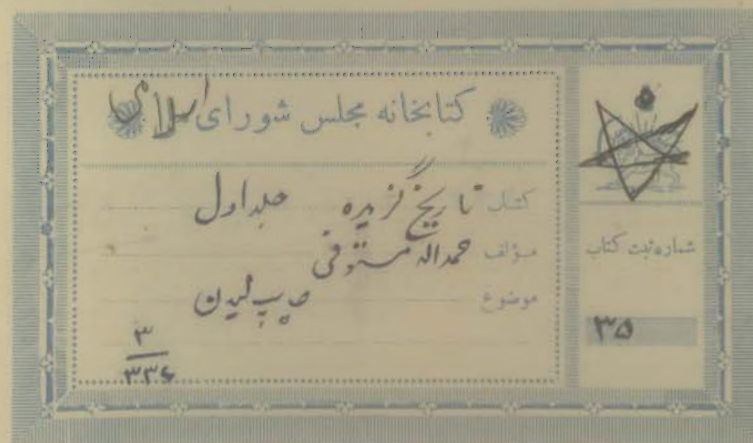 کتابخانه مجلس شورای اسلامی
کتاب تاریخ گزیده جلد اول
مؤلف حمداله مستوفی
موضوع چاپ لیدن
۳
۳۳۶
شماره ثبت کتاب
۳۵